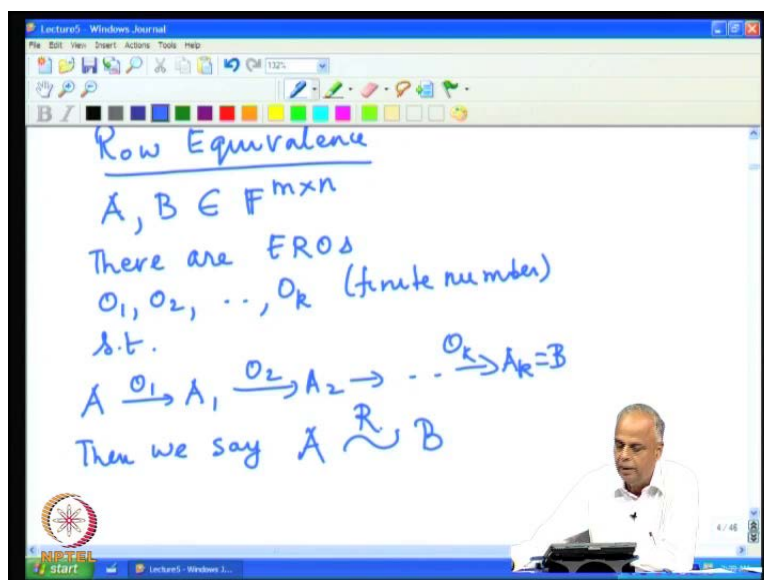 Lecture5 - Windows Journal
File Edit View Insert Actions Tools Help
132%
B I
Row Equivalence
A, B ∈ F^{m×n}
There are EROs
O₁, O₂, .., O_k (finite number)
s.t.
A →^{O₁} A₁ →^{O₂} A₂ → .. →^{O_k} A_k = B
Then we say A ~^{R} B
4 / 46
NPTEL
start Lecture5 - Windows J...